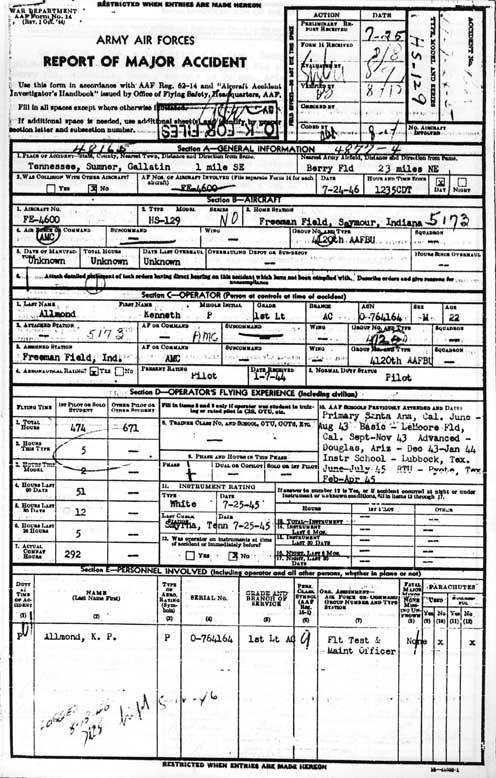 RESTRICTED WHEN ENTRIES ARE MADE HEREON
WAR DEPARTMENT
AAF Form No. 14
(Rev. 1 Oct. '44)
ARMY AIR FORCES
REPORT OF MAJOR ACCIDENT
Use this form in accordance with AAF Reg. 62-14 and "Aircraft Accident
Investigator's Handbook" issued by Office of Flying Safety, Headquarters, AAF.
Fill in all spaces except where otherwise
If additional space is needed, use additional sheet(s) and identify by proper
section letter and subsection number.
O. K. FOR FILES
ACTION DATE
PRELIMINARY REPORT RECEIVED 7-25
FORM 14 RECEIVED 7/8
EVALUATED BY
VERIFIED BY 8/12
CHECKED BY
CODED
NO. AIRCRAFT INVOLVED
ACCIDENT NO.
TYPE, MODEL AND SERIES
HS129
48165 Section A—GENERAL INFORMATION 4877-4
1. PLACE OF ACCIDENT—State, County, Nearest Town, Distance and Direction from Same. Nearest Army Airfield, Distance and Direction from Same.
Tennessee, Sumner, Gallatin 1 mile SE Berry Fld 23 miles NE
2. WAS COLLISION WITH OTHER AIRCRAFT? AF NO. OR AIRCRAFT INVOLVED (File separate Form 14 for each aircraft) DATE HOUR AND TIME ZONE
Yes X No FE-4600 7-24-46 1235CDT X DAY NIGHT
Section B—AIRCRAFT
1. AIRCRAFT NO. 2. TYPE MODEL SERIES 3. HOME STATION
FE-4600 HS-129 NO Freeman Field, Seymour, Indiana 5173
4. AIR FORCE OR COMMAND SUBCOMMAND WING GROUP NO. AND TYPE SQUADRON
AMC — — 4120th AAFBU —
5. DATE OF MANUFACTURE TOTAL HOURS DATE LAST OVERHAUL OVERHAULING DEPOT OR SUB-DEPOT HOURS SINCE OVERHAUL
Unknown Unknown Unknown — —
6. Attach detailed statement of tech orders having direct bearing on this accident which have not been complied with. Describe orders and give reasons for noncompliance
Section C—OPERATOR (Person at controls at time of accident)
1. LAST NAME FIRST NAME MIDDLE INITIAL GRADE BRANCH ASN SEX AGE
Allmond Kenneth P 1st Lt AC O-764164 M 22
2. ATTACHED STATION AF OR COMMAND SUBCOMMAND WING GROUP NO. AND TYPE SQUADRON
5173 AMC — —
3. ASSIGNED STATION AF OR COMMAND SUBCOMMAND WING GROUP NO. AND TYPE SQUADRON
Freeman Field, Ind. AMC — — 4120th AAFBU —
4. AERONAUTICAL RATING? X Yes No PRESENT RATING Pilot DATE RECEIVED 1-7-44 5. NORMAL DUTY STATUS Pilot
Section D—OPERATOR'S FLYING EXPERIENCE (Including civilian)
FLYING TIME 1ST PILOT OR SOLO STUDENT OTHER PILOT OR OTHER STUDENT
1. TOTAL HOURS 474 671
2. HOURS THIS TYPE 5 —
3. HOURS THIS MODEL 2 —
4. HOURS LAST 90 DAYS 51
12
5
7. ACTUAL COMBAT HOURS 292
Fill in items 8 and 9 only if operator was student in training or rated pilot in CIS, OTU, etc.
8. TRAINEE CLASS NO. AND SCHOOL, OTU, COTS, ETC.
9. PHASE AND HOURS IN THIS PHASE
PHASE DUAL OR COPILOT SOLO OR 1ST PILOT
10. AAF SCHOOLS PREVIOUSLY ATTENDED AND DATES
Primary Santa Ana, Cal. June -
Aug 43 Basic - LeMoore Fld,
Cal. Sept-Nov 43 Advanced -
Douglas, Ariz - Dec 43-Jan 44
Instr School - Lubbock, Tex.
June-July 45 RTU - Pyote, Tex
Feb-Apr 45
11. INSTRUMENT RATING
TYPE DATE
White 7-25-45
LAST CHECK STATION DATE
Smyrna, Tenn 7-25-45
12. Was operator on instruments at time of accident or immediately before?
Yes X No
If answer to number 12 is Yes, or if accident occurred at night or under instrument or unknown conditions, fill in items 13 through 17.
HOURS 1ST PILOT OTHER
13. TOTAL—INSTRUMENT
14. INSTRUMENT LAST 6 MOS.
15. INSTRUMENT LAST 30 DAYS
16. NIGHT, LAST 6 MOS.
17. NIGHT, LAST 30 DAYS
Section E—PERSONNEL INVOLVED (Including operator and all other persons, whether in plane or not)
DUTY AT TIME OF ACCIDENT (1)
NAME (Last Name First) (2)
TYPE OF AERO. RATING (Symbols) (3)
SERIAL NO. (4)
GRADE AND BRANCH OF SERVICE (5)
PERS. CLASS. SYMBOL (AAF Reg. 15-1) (6)
ORG. ASSIGNMENT—AIR FORCE OR COMMAND GROUP NUMBER AND TYPE STATION (7)
FATAL MAJOR MINOR NONE MISSING UNKNOWN (8)
PARACHUTES
USED SUCCESSFUL
Yes No Yes No
(9) (10) (11) (12)
P Allmond, K. P. P O-764164 1st Lt AC 9 Flt Test & None x x
Maint Officer
LOGGED
RESTRICTED WHEN ENTRIES ARE MADE HEREON